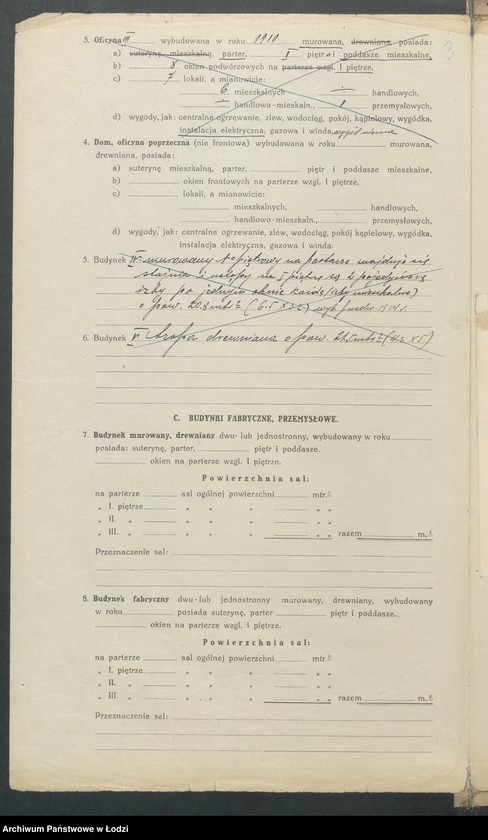 3
3. Oficyna III wybudowana w roku 1910 murowana, drewniana, posiada:
a) suterynę mieszkalną, parter, I piętro i poddasze mieszkalne,
b) 8 okien podwórzowych na parterze wzgl. I piętrze,
c) 7 lokali, a mianowicie:
6 mieszkalnych ÷ handlowych,
÷ handlowo-mieskaln., 1 przemysłowych,
d) wygody, jak: centralne ogrzewanie, zlew, wodociąg, pokój, kąpielowy, wygódka,
instalacja elektryczna, gazowa i winda,
4. Dom, oficyna poprzeczna (nie frontowa) wybudowana w roku murowana,
drewniana, posiada:
a) suterynę mieszkalną, parter, piętro i poddasze mieszkalne,
b) okien frontowych na parterze wzgl. I piętrze,
c) lokali, a mianowicie:
mieszkalnych, handlowych,
handlowo-mieszkaln., przemysłowych,
d) wygody, jak: centralne ogrzewanie, zlew, wodociąg, pokój kąpielowy, wygódka,
instalacja elektryczna, gazowa i winda.
5. Budynek IV murowany 1° piętrowy na parterze znajduje się
stajnia i na I piętrze są 2 pojedyńcze
izby po jednym oknie każda (izby mieszkalne)
o pow. 20.8 mtr² (6.5 x 3.2)
6. Budynek V Szopa drewniana o pow. 21.5 mtr² (4.3 x 5)
C. BUDYNKI FABRYCZNE, PRZEMYSŁOWE.
7. Budynek murowany, drewniany dwu- lub jednostronny, wybudowany w roku
posiada: suterynę, parter, piętr i poddasze.
okien na parterze wzgl. I piętrze.
Powierzchnia sal:
na parterze sal ogólnej powierzchni mtr.²
„ I. piętrze „ „ „ „ „
„ II „ „ „ „ „ „
„ III. „ „ „ „ „ „ razem m.²
Przeznaczenie sal:
8. Budynek fabryczny dwu-lub jednostronny murowany, drewniany, wybudowany
w roku posiada suterynę, parter piętr i poddasze.
okien na parterze wzgl. I piętrze.
Powierzchnia sal:
na parterze sal ogólnej powierzchni mtr²
„ I. piętrze „ „ „ „ „
„ II. „ „ „ „ „ „
„ III „ „ „ „ „ „ razem m.²
Przeznaczenie sal:
Archiwum Państwowe w Łodzi